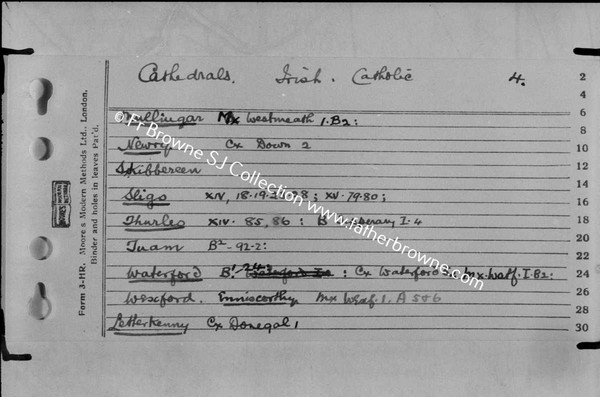 Cathedrals. Irish. Catholic 4.
Mullingar Mx Westmeath 1.B2:
Newry Cx Down 2
Skibbereen
Sligo XIV, 18.19. 98; XV.79.80;
Thurles XIV. 85, 86: B Tipperary I.4
Tuam B2-92-2:
Waterford B! 243 : Cx Waterford Mx.Watf.I.B2:
Wexford. Enniscorthy Mx Wexf.1, A 5&6
Letterkenny Cx Donegal 1
Form 3-HR. Moore's Modern Methods Ltd., London.
Binder and holes in leaves Pat'd.
2
4
6
8
10
12
14
16
18
20
22
24
26
28
30
© Fr Browne SJ Collection www.fatherbrowne.com